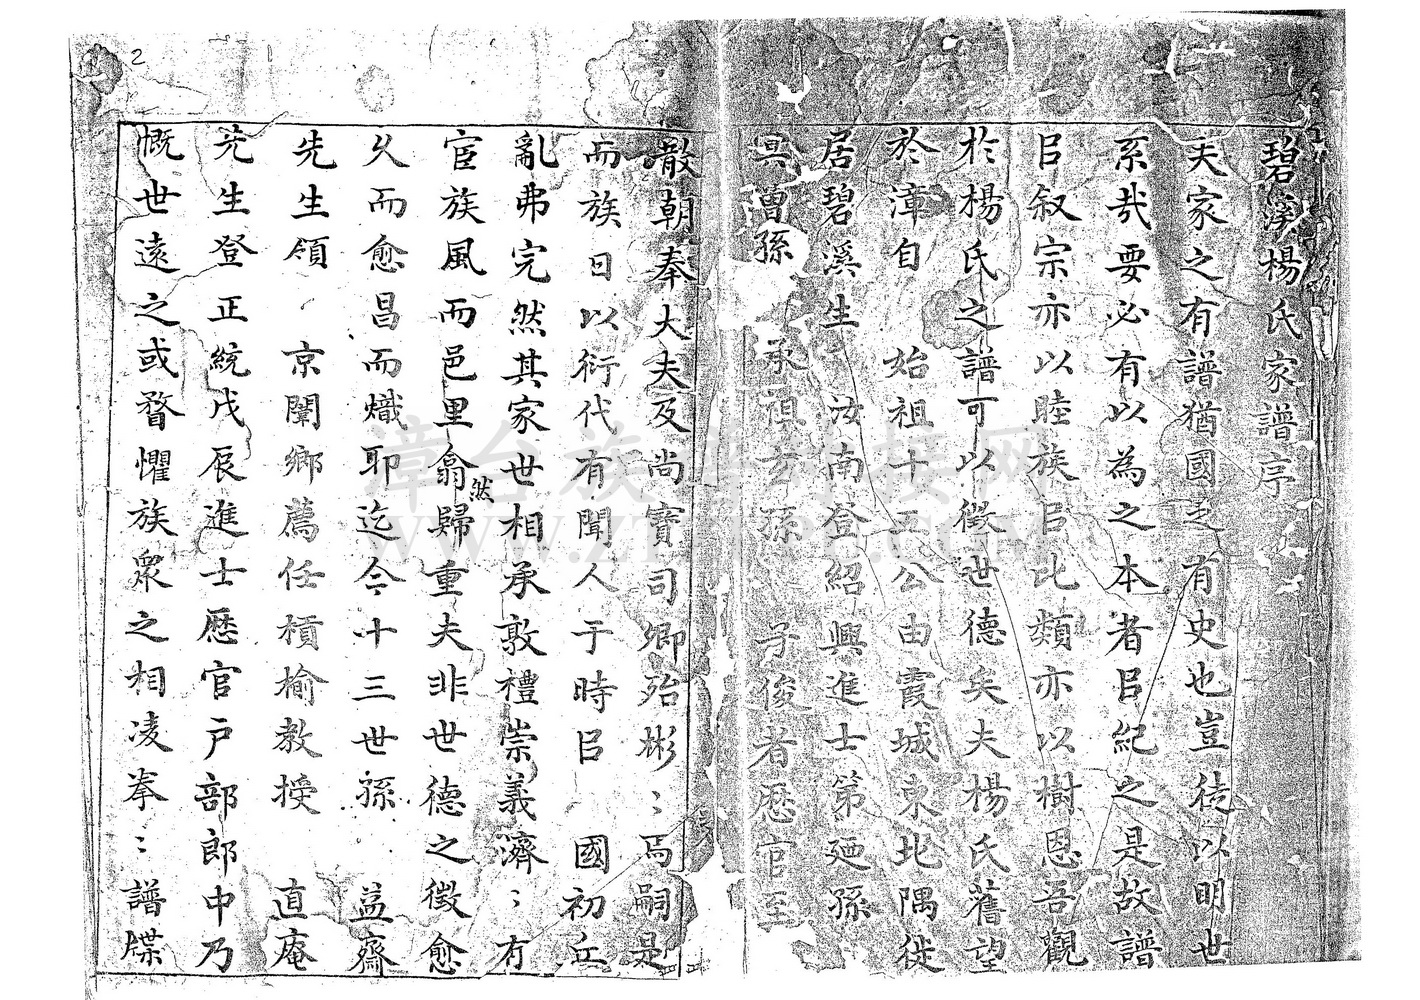 碧溪楊氏家譜序
夫家之有譜猶國之有史也豈徒以明世
系哉要必有以為之本者㠯紀之是故譜
㠯叙宗亦以睦族㠯比類亦以樹恩吾觀
於楊氏之譜可以徵世德矣夫楊氏舊望
於漳自 始祖十三公由霞城東北隅徙
居碧溪生 汝南登紹興進士第廼孫
曾孫 承祖玄孫 子俊者歷官至
散朝奉大夫及尚寶司卿殆彬〻焉嗣是
而族日以衍代有聞人于時㠯 國初丘
亂弗完然其家世相承敦禮崇義濟〻有
宦族風而邑里翕然歸重夫非世德之徵愈
久而愈昌而熾耶迄今十三世孫 益齋
先生領 京闈鄉薦任 教授 直庵
先生登正統戊辰進士歷官戶部郎中乃
慨世遠之或瞀懼族眾之相凌拳〻譜牒
2
漳台族谱对接网